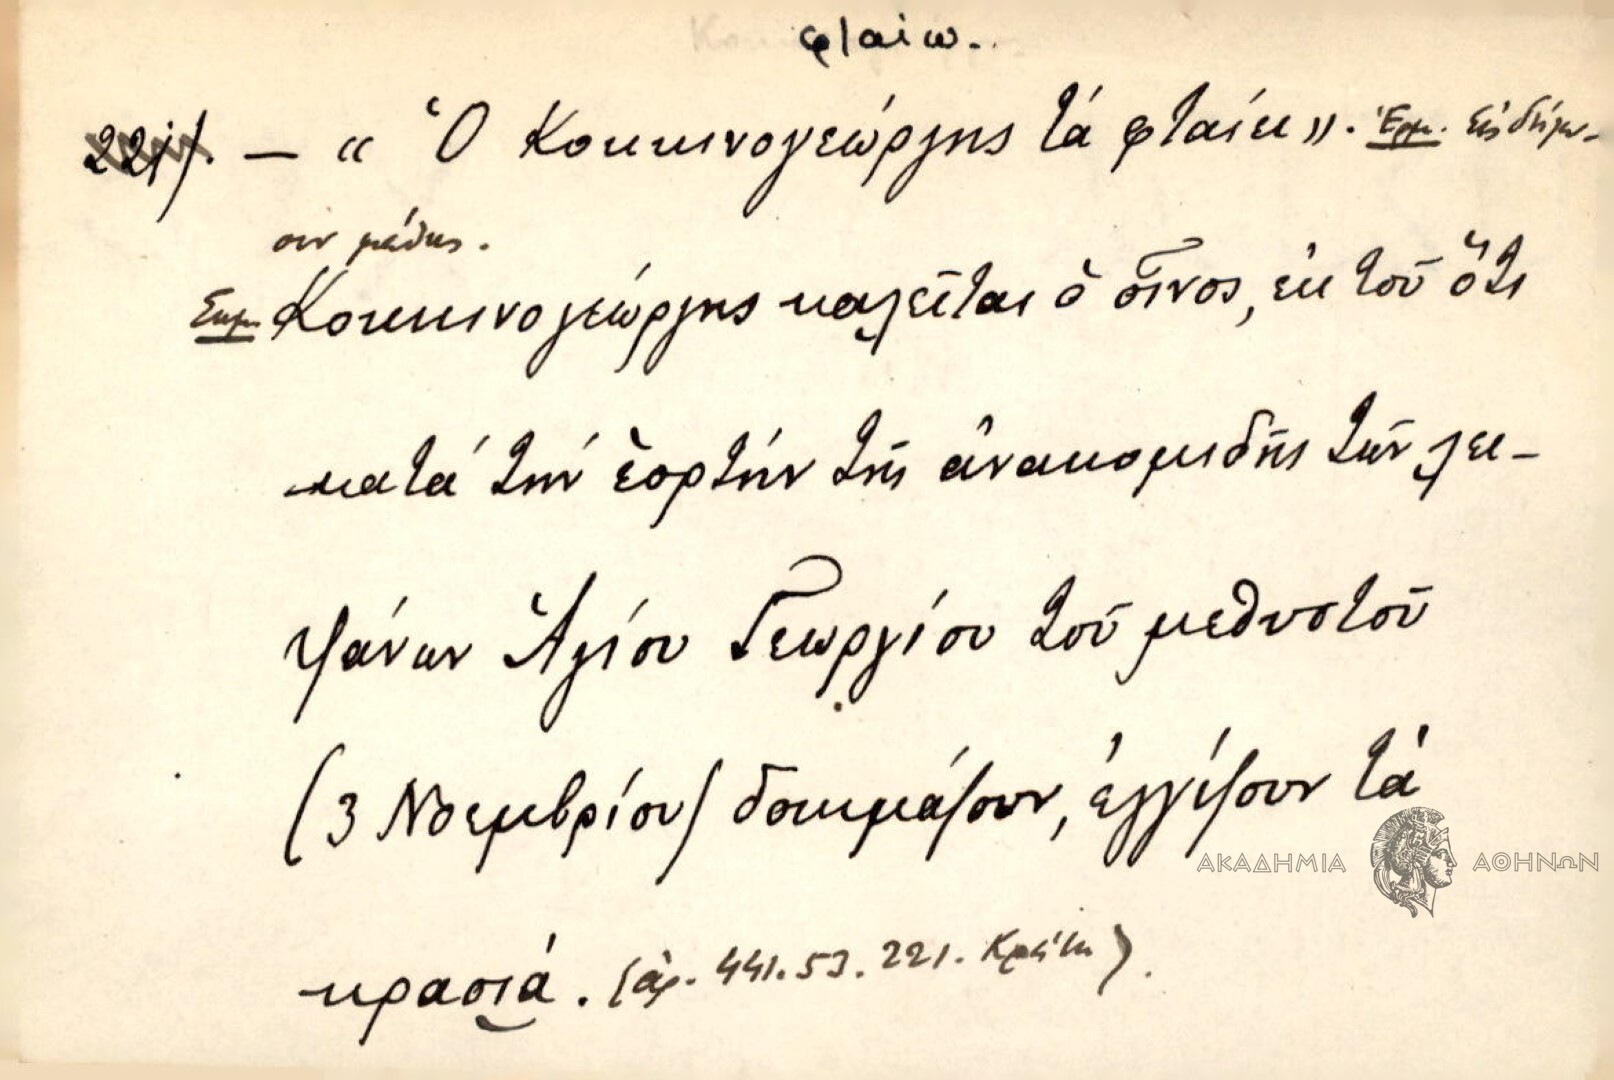 φταίω.
221). — « Ὁ Κοκκινογεώργης τά φταίει». Ἑρμ. Εἰς δήλω-
σιν μέθης.
Σημ. Κοκκινογεώργης καλεῖται ὁ οἶνος, ἐκ τοῦ ὅτι
κατά τήν ἑορτήν τῆς ἀνακομιδῆς τῶν λει-
ψάνων Ἁγίου Γεωργίου τοῦ μεθυστοῦ
(3 Νοεμβρίου) δοκιμάζουν, ἐγγίζουν τά
κρασιά. (ἀρ. 441. 53. 221. Κρήτη).
ΑΚΑΔΗΜΙΑ ΑΘΗΝΩΝ